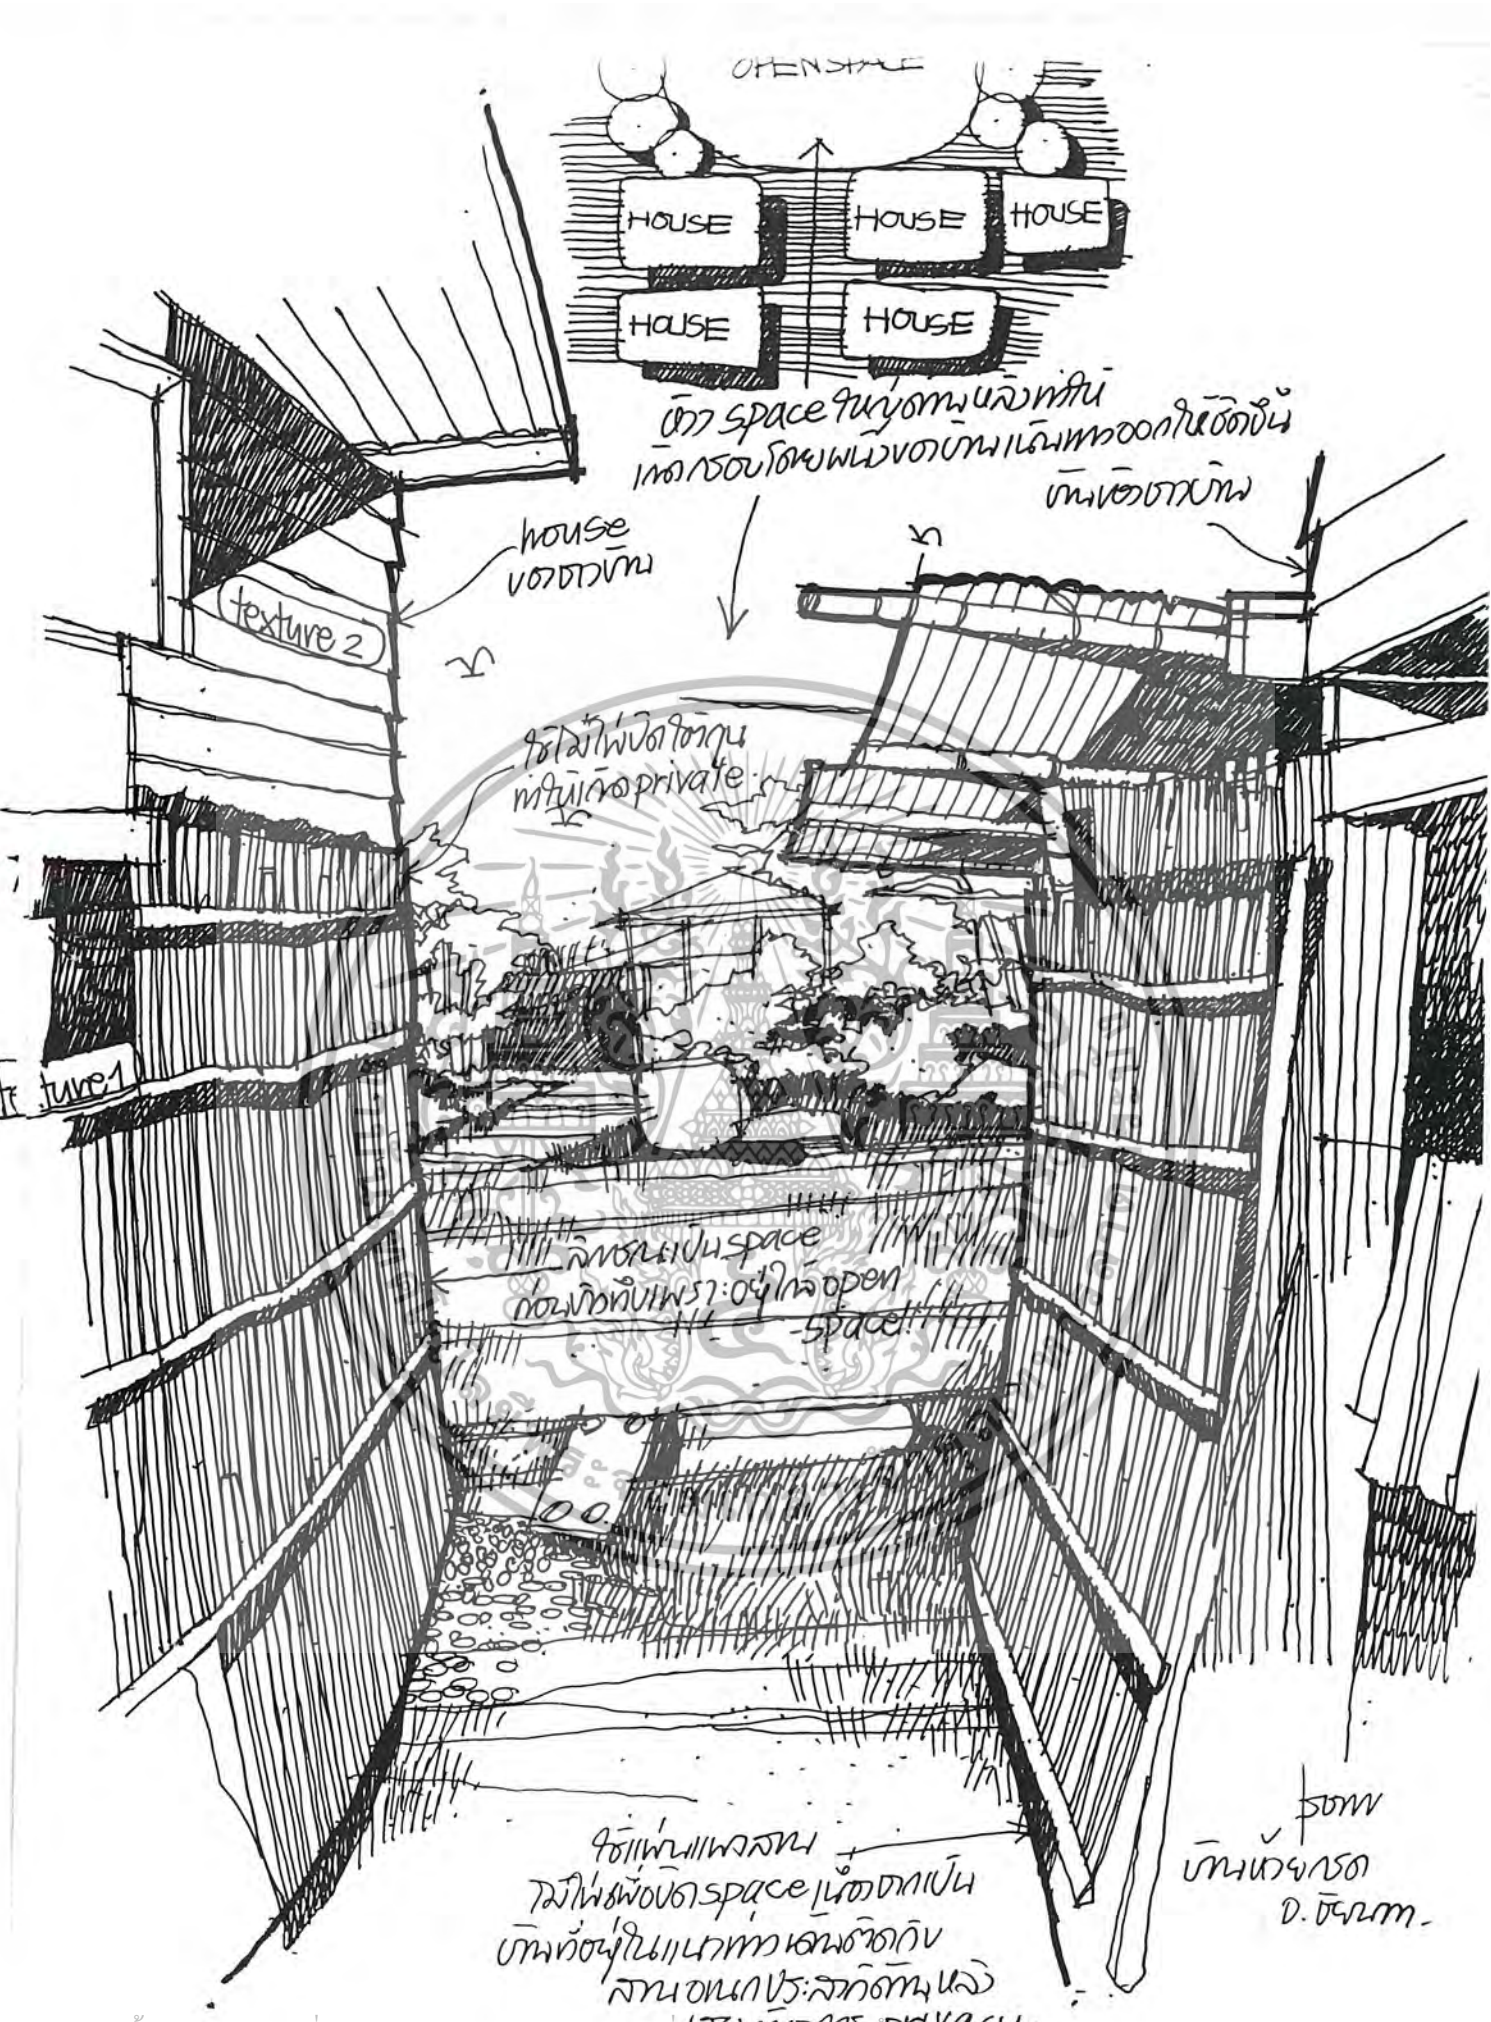 OPEN SPACE
HOUSE HOUSE HOUSE
HOUSE HOUSE
space ใหญ่ด้านหลังทำให้
เกิดกรอบโดยผนังของบ้านเน้นทางออกให้ชัดขึ้น
บ้านของชาวบ้าน
house
ของชาวบ้าน
texture 2
ใช้ไม้ไผ่ปิดใต้ถุน
ทำให้เกิด private
ture 1
ลักษณะเป็น space
ค่อนข้างทึบเพราะอยู่ใกล้ open
space!
ใช้แผ่นแผงสาน
ไม้ไผ่เพื่อปิด space เนื่องจากเป็น
บ้านที่อยู่ในแนวทางเดินติดกับ
ลานอเนกประสงค์ด้านหลัง
บ้านห้วยกรด
จ. ชัยนาท.